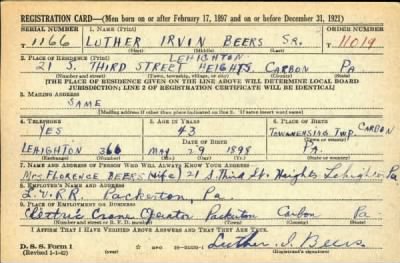 REGISTRATION CARD—(Men born on or after February 17, 1897 and on or before December 31, 1921)
SERIAL NUMBER 1. NAME (Print) ORDER NUMBER
T 1166 LUTHER IRVIN BEERS SR. 11019
(First) (Middle) (Last)
2. PLACE OF RESIDENCE (Print) LEHIGHTON
21 S. THIRD STREET HEIGHTS CARBON PA
(Number and street) (Town, township, village, or city) (County) (State)
[THE PLACE OF RESIDENCE GIVEN ON THE LINE ABOVE WILL DETERMINE LOCAL BOARD
JURISDICTION; LINE 2 OF REGISTRATION CERTIFICATE WILL BE IDENTICAL]
3. MAILING ADDRESS
SAME
[Mailing address if other than place indicated on line 2. If same insert word same]
4. TELEPHONE 5. AGE IN YEARS 6. PLACE OF BIRTH
YES 43 TOWAMENSING TWP. CARBON
DATE OF BIRTH (Town or county)
LEHIGHTON 366 MAY 29 1898 PA.
(Exchange) (Number) (Mo.) (Day) (Yr.) (State or country)
7. NAME AND ADDRESS OF PERSON WHO WILL ALWAYS KNOW YOUR ADDRESS
Mrs. FLORENCE BEERS (Wife) 21 S. Third St. Heights Lehighton Pa
8. EMPLOYER'S NAME AND ADDRESS
L.V.R.R. Packerton, Pa.
9. PLACE OF EMPLOYMENT OR BUSINESS
Electric Crane Operator Packerton Carbon Pa
(Number and street or R. F. D. number) (Town) (County) (State)
I AFFIRM THAT I HAVE VERIFIED ABOVE ANSWERS AND THAT THEY ARE TRUE.
D. S. S. Form 1
(Revised 1-1-42) (over) GPO Luther I. Beers
(Registrant's signature)